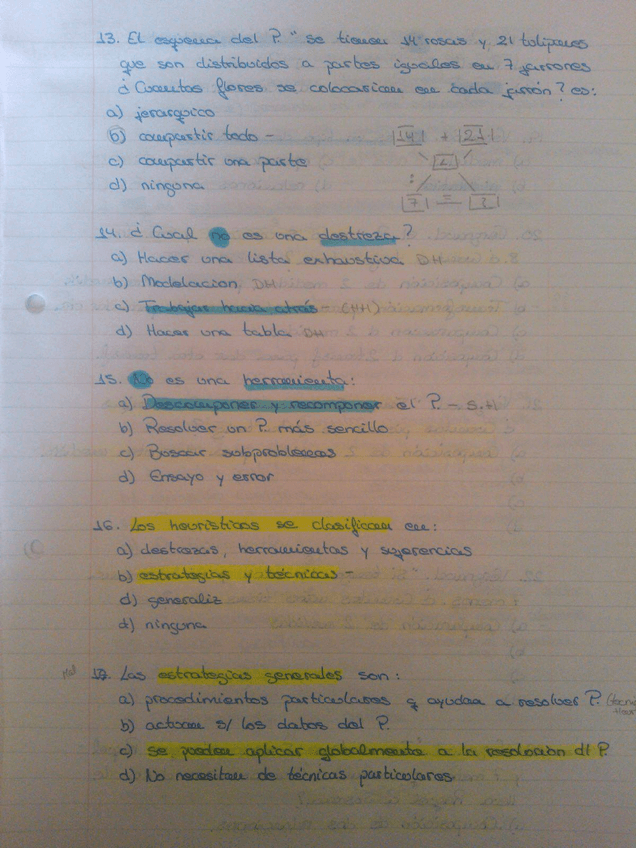 13. El esquema del P. "se tienen 14 rosas y 21 tulipanes
que son distribuidos a partes iguales en 7 jarrones
¿Cuantas flores se colocarían en cada jarrón? es:
a) jerarquico
b) compartir todo - 14 + 21
c) compartir una parte
d) ninguna : 7 = ?
14. ¿Cual no es una destreza?
a) Hacer una lista exhaustiva DH
b) Modelacion DH
c) Trabajar hacia atrás - (HH)
d) Hacer una tabla DH
15. No es una herramienta:
a) Descomponer y recomponer el P. - S.H
b) Resolver un P. más sencillo
c) Buscar subproblemas
d) Ensayo y error
16. Los heurísticos se clasifican en:
a) destrezas, herramientas y sugerencias
b) estrategias y técnicas -
d) generaliz
d) ninguna
Mal 17. Las estrategias generales son:
a) procedimientos particulares q ayudan a resolver P.
b) actuan s/ los datos del P.
c) se pueden aplicar globalmente a la resolución dl P.
d) No necesitan de técnicas particulares